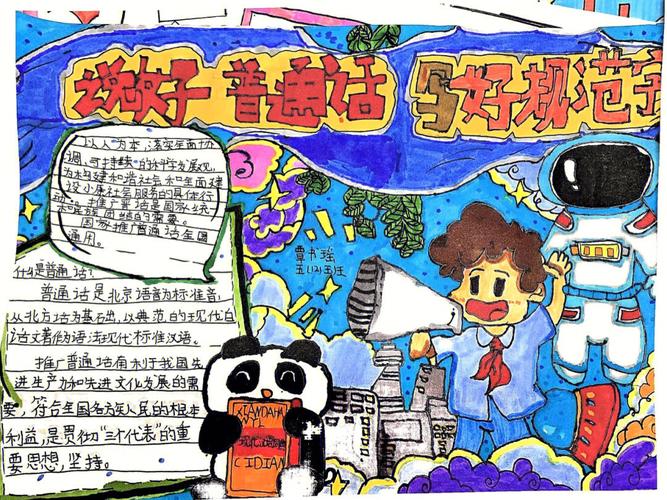 说好 普通话 写好规范字
以人为本,落实全面协
调,可持续的科学发展观,
为构建和谐社会和全面建
设小康社会服务的具体行
动。推广普通话是国家统
民族团结的需要。
国家推广普通话全国
通用。
什么是普通话?
普通话是北京语言为标准音,
以北方话为基础,以典范的现代白
话文著作为语法现代标准汉语。
推广普通话有利于我国先
进生产力和先进文化发展的需
要,符合全国各方族人民的根本
利益,是贯彻“三个代表”的重
要思想,坚持。
覃书瑶
五(12)班
XIANDAHA
NYL
现代汉语词
CIDIAN